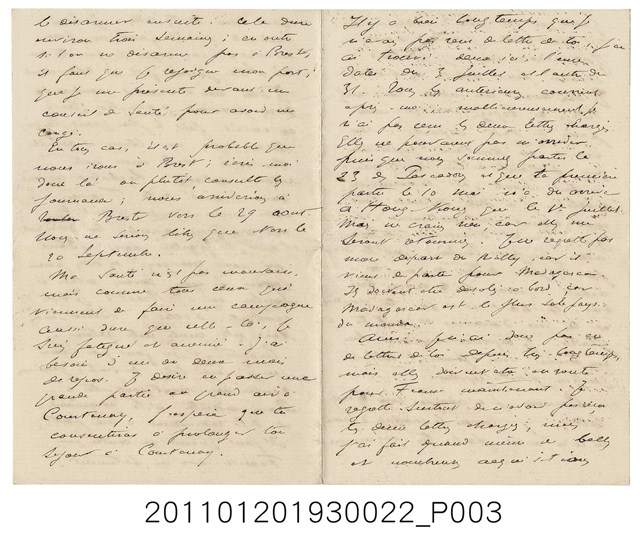 le désarmer ensuite. Cela dure
environ trois semaines; en outre
si l'on ne désarme pas à Brest,
il faut que je rejoigne mon port,
que je me présente devant un
conseil de Santé pour avoir un
congé.
En tous cas, il est probable que
nous irons à Brest; écris-moi
donc là ou plutôt consulte les
journaux; nous arriverions à
Brest vers le 29 août
nous ne serions libres que vers le
20 Septembre.
Ma Santé n'est pas mauvaise,
mais comme tous ceux qui
viennent de faire une campagne
aussi dure que celle-là, je
suis fatigué et anémié. J'ai
besoin d'un ou deux mois
de repos. Je désire en passer une
grande partie au grand air à
Courtenay, j'espère que tu
consentiras à prolonger ton
séjour à Courtenay.
Il y a bien longtemps que je
n'avais pas reçu de lettre de toi. J'en
ai trouvé deux ici: l'une
datée du 3 juillet et l'autre du
31. Tous les antérieurs courent
après moi malheureusement. je
n'ai pas reçu les deux lettres chargées
Elles ne pouvaient pas m'arriver
puisque nous sommes partis le
23 des Pescadores et que la première
partie le 10 mai n'a dû arriver
à Hong-Kong que le 1er juillet.
Mais ne crains rien, car elles me
seront retournées. Ne regrette pas
mon départ du Villars, car il
vient de partir pour Madagascar.
Ils doivent être désolés à bord car
Madagascar est le plus sale pays
du monde.
Ainsi je n'ai donc pas eu
de lettres de toi depuis très longtemps
mais elles doivent être en route
pour France maintenant. Je
regrette surtout de n'avoir pas reçu
les deux lettres chargées; mais
j'ai fait quand même de belles
et nombreuses acquisitions
201101201930022_P003